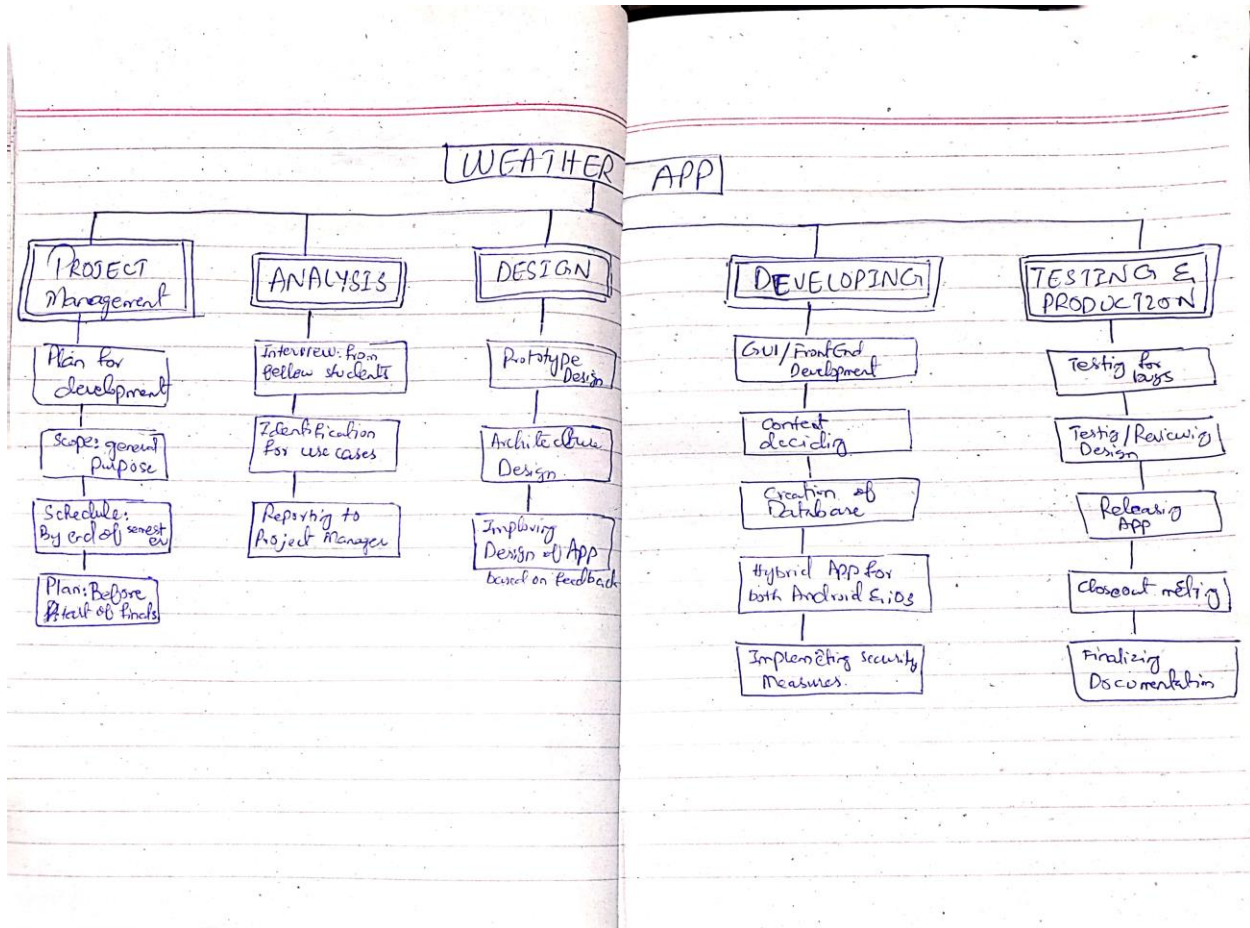 WEATHER APP
PROJECT
Management
Plan for
development
Scope: general
purpose
Schedule:
By end of semest
er
Plan: Before
Start of finals
ANALYSIS
Interview: from
fellow students
Identification
for use cases
Reporting to
Project Manager
DESIGN
Prototype
Design
Architecture
Design
Improving
Design of App
based on feedback
DEVELOPING
GUI/FrontEnd
Development
Content
deciding
Creation of
Database
Hybrid App for
both Android & iOS
Implemeting security
Measures.
TESTING &
PRODUCTION
Testig for
bugs
Testig/Reviewig
Design
Releasig
App
Closeout meetig
Finalizing
Documentation